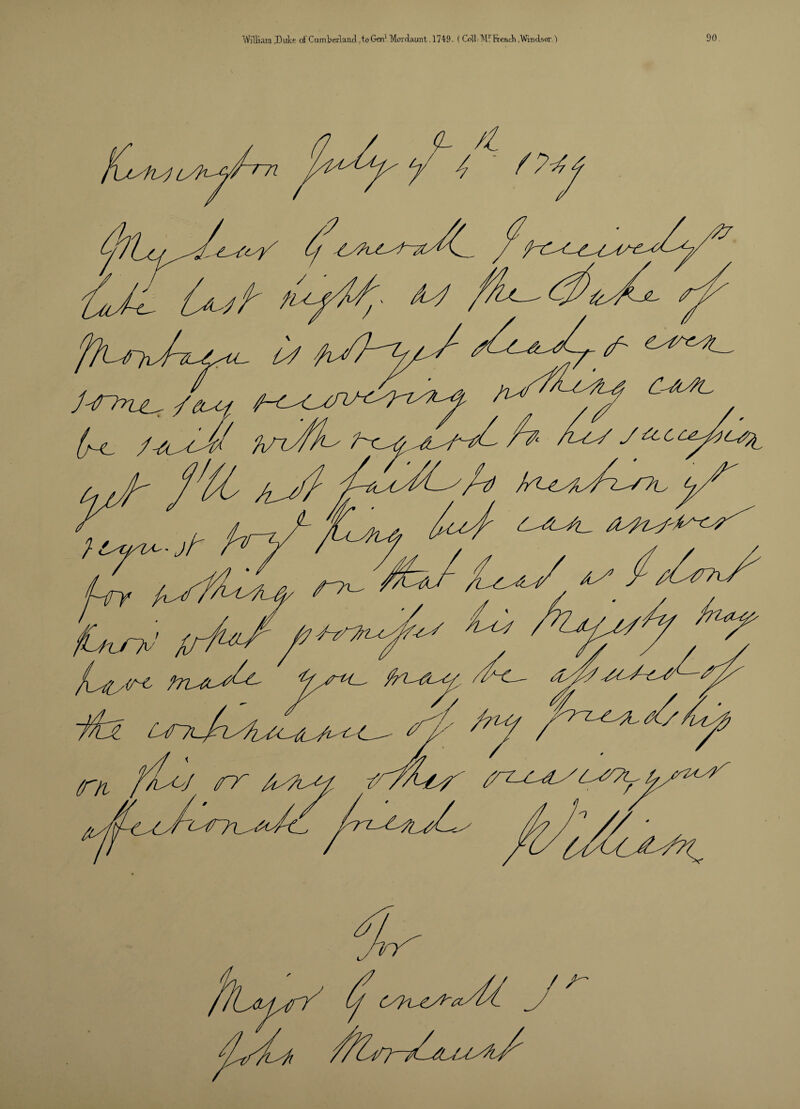 William, Duke of Cumberland, to Genl Mordaunt. 1749. (Coll. Mr French, Windsor.)
90.
Kensington July ye 4th 1749
My dear Generall I received yrs
late last night, as the Duke of
Montague is not yet dead, & even
some say recovering nothing can
be said with regard to his succession
yet I'll not faill to mention yr
request to ye King but can answer
for nothing on that head as I dont
know what promisses his Majesty may
have made you may be assused of
the continuance of my friendship
on this or any other occasion, your
affectionate friend William
For
Major Generall Sr
John Mordaunt